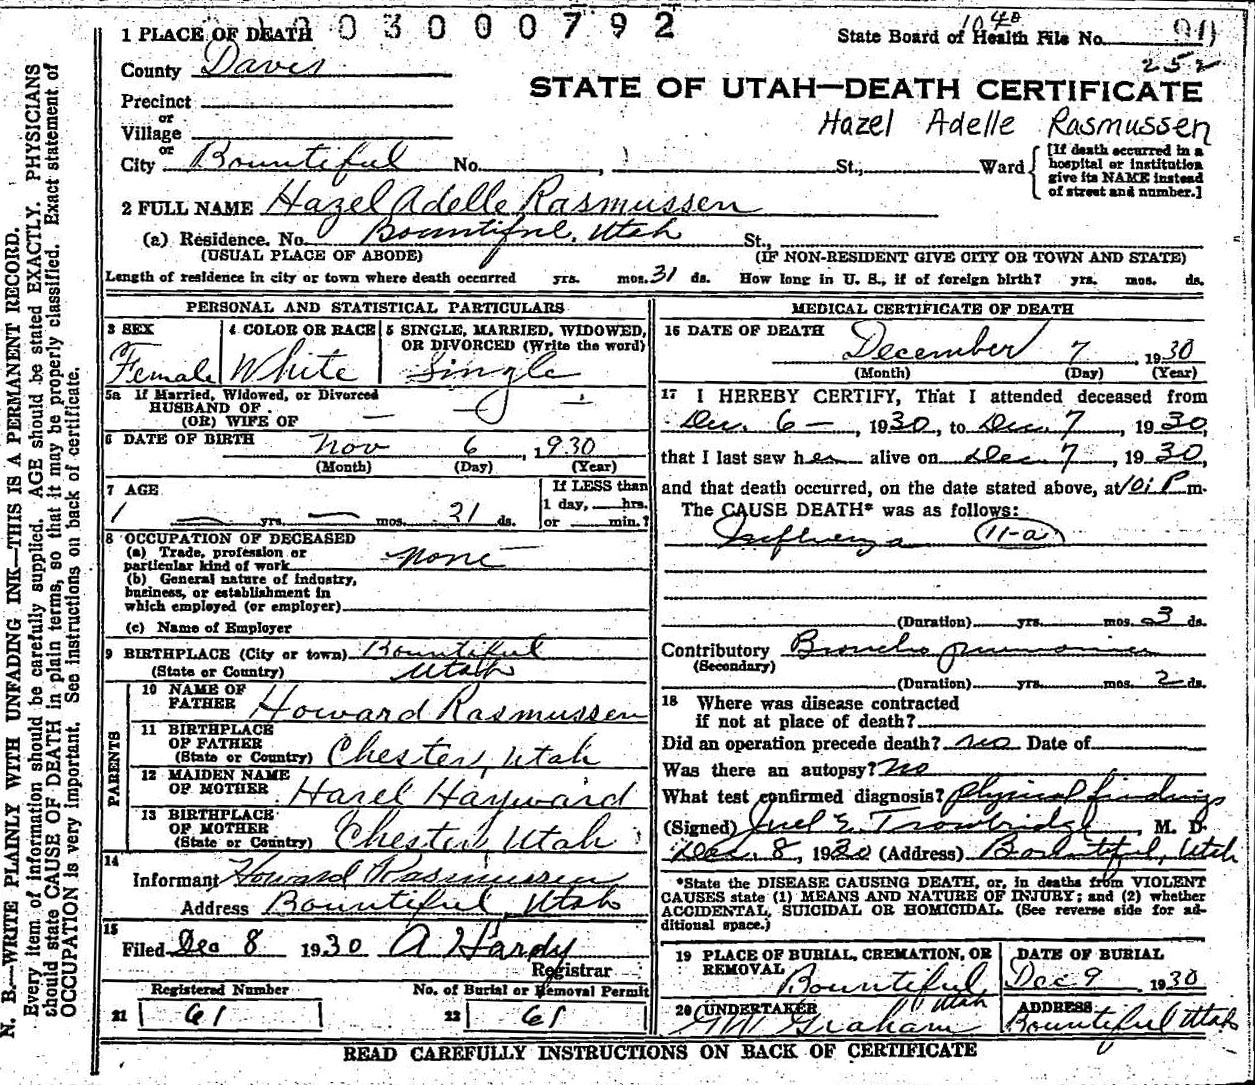 1 PLACE OF DEATH 003000792
State Board of Health File No. 90
1040
252
County Davis
STATE OF UTAH—DEATH CERTIFICATE
Precinct
or
Village
or
Hazel Adelle Rasmussen
City Bountiful No. , St., Ward
[If death occurred in a
hospital or institution
give its NAME instead
of street and number.]
2 FULL NAME Hazel Adelle Rasmussen
(a) Residence. No. Bountiful, Utah St.,
(USUAL PLACE OF ABODE) (IF NON-RESIDENT GIVE CITY OR TOWN AND STATE)
Length of residence in city or town where death occurred yrs. mos. 31 ds. How long in U. S., if of foreign birth? yrs. mos. ds.
PERSONAL AND STATISTICAL PARTICULARS
3 SEX
Female
4 COLOR OR RACE
White
5 SINGLE, MARRIED, WIDOWED,
OR DIVORCED (Write the word)
Single
5a If Married, Widowed, or Divorced
HUSBAND OF
(OR) WIFE OF —
6 DATE OF BIRTH Nov 6, 1930
(Month) (Day) (Year)
7 AGE
1 — yrs. — mos. 21 ds.
If LESS than
1 day, hrs.
or min.?
8 OCCUPATION OF DECEASED
(a) Trade, profession or
particular kind of work none
(b) General nature of industry,
business, or establishment in
which employed (or employer)
(c) Name of Employer
9 BIRTHPLACE (City or town) Bountiful
(State or Country) Utah
PARENTS
10 NAME OF
FATHER Howard Rasmussen
11 BIRTHPLACE
OF FATHER
(State or Country) Chester, Utah
12 MAIDEN NAME
OF MOTHER Hazel Hayward
13 BIRTHPLACE
OF MOTHER
(State or Country) Chester, Utah
14
Informant Howard Rasmussen
Address Bountiful, Utah
15
Filed Dec 8 1930 A Hardy
Registrar
Registered Number No. of Burial or Removal Permit
21 61 22 61
MEDICAL CERTIFICATE OF DEATH
16 DATE OF DEATH
December 7, 1930
(Month) (Day) (Year)
17 I HEREBY CERTIFY, That I attended deceased from
Dec. 6 —, 1930, to Dec. 7, 1930,
that I last saw her alive on Dec. 7, 1930,
and that death occurred, on the date stated above, at 10: P m.
The CAUSE DEATH* was as follows:
Influenza 11-a
(Duration) yrs. mos. 3 ds.
Contributory Broncho pneumonia
(Secondary)
(Duration) yrs. mos. 2 ds.
18 Where was disease contracted
if not at place of death?
Did an operation precede death? no Date of
Was there an autopsy? No
What test confirmed diagnosis? physical findings
(Signed) Trowbridge, M. D.
Dec. 8, 1930 (Address) Bountiful, Utah
*State the DISEASE CAUSING DEATH, or, in deaths from VIOLENT
CAUSES state (1) MEANS AND NATURE OF INJURY; and (2) whether
ACCIDENTAL, SUICIDAL OR HOMICIDAL. (See reverse side for ad-
ditional space.)
19 PLACE OF BURIAL, CREMATION, OR
REMOVAL Bountiful Utah
DATE OF BURIAL
Dec 9 1930
20 UNDERTAKER
Graham
ADDRESS
Bountiful Utah
READ CAREFULLY INSTRUCTIONS ON BACK OF CERTIFICATE
N. B.—WRITE PLAINLY WITH UNFADING INK—THIS IS A PERMANENT RECORD.
Every item of information should be carefully supplied. AGE should be stated EXACTLY. PHYSICIANS
should state CAUSE OF DEATH in plain terms, so that it may be properly classified. Exact statement of
OCCUPATION is very important. See instructions on back of certificate.